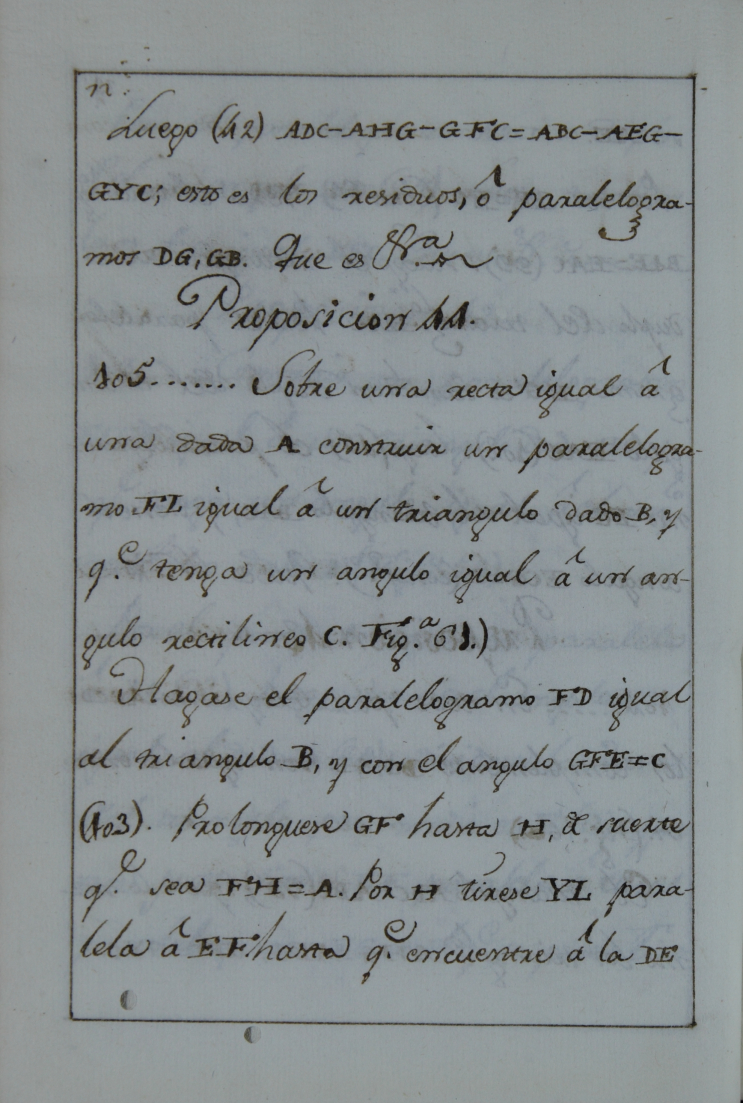 n.
Luego (42) ADC-AHG-GFC=ABC-AEG-
GYC; esto es los residuos, ò paralelogra-
mos DG, GB. Que es &.ª
Proposicion 44.
105....... Sobre una recta igual à
una dada A construir un paralelogra-
mo FL igual à un triangulo dado B, y
q.e tenga un angulo igual à un an-
gulo rectilineo C. Fig.ª 61.)
Hagase el paralelogramo FD igual
al triangulo B, y con el angulo GFE=C
(103). Prolonguese GF hasta H, de suerte
q.e sea FH=A. Por H tirese YL para-
lela à EF hasta q.e encuentre à la DE